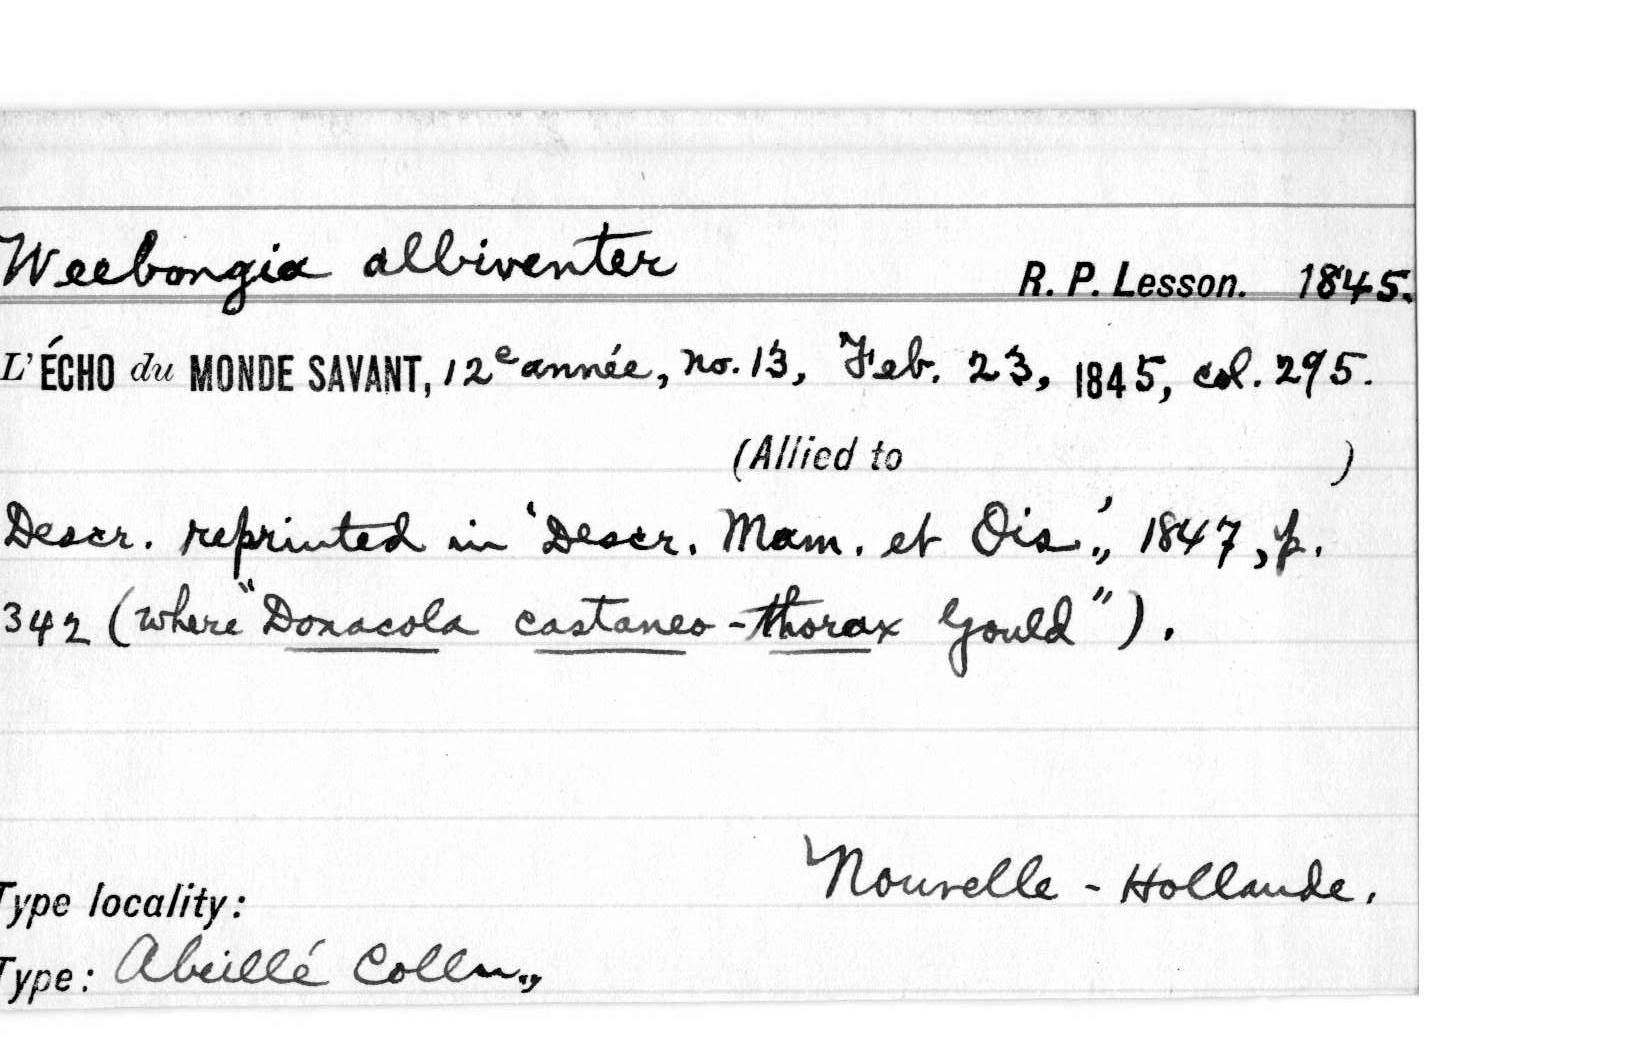 Weebongia albiventer R. P. Lesson. 1845.
L' ÉCHO du MONDE SAVANT, 12e année, no. 13, Feb. 23, 1845, col. 295.
(Allied to )
Descr. reprinted in 'Descr. Mam. et Ois.', 1847, p.
342 (where "Donacola castaneo-thorax Gould").
Nouvelle-Hollande.
Type locality:
Type: Abeillé Colln.,